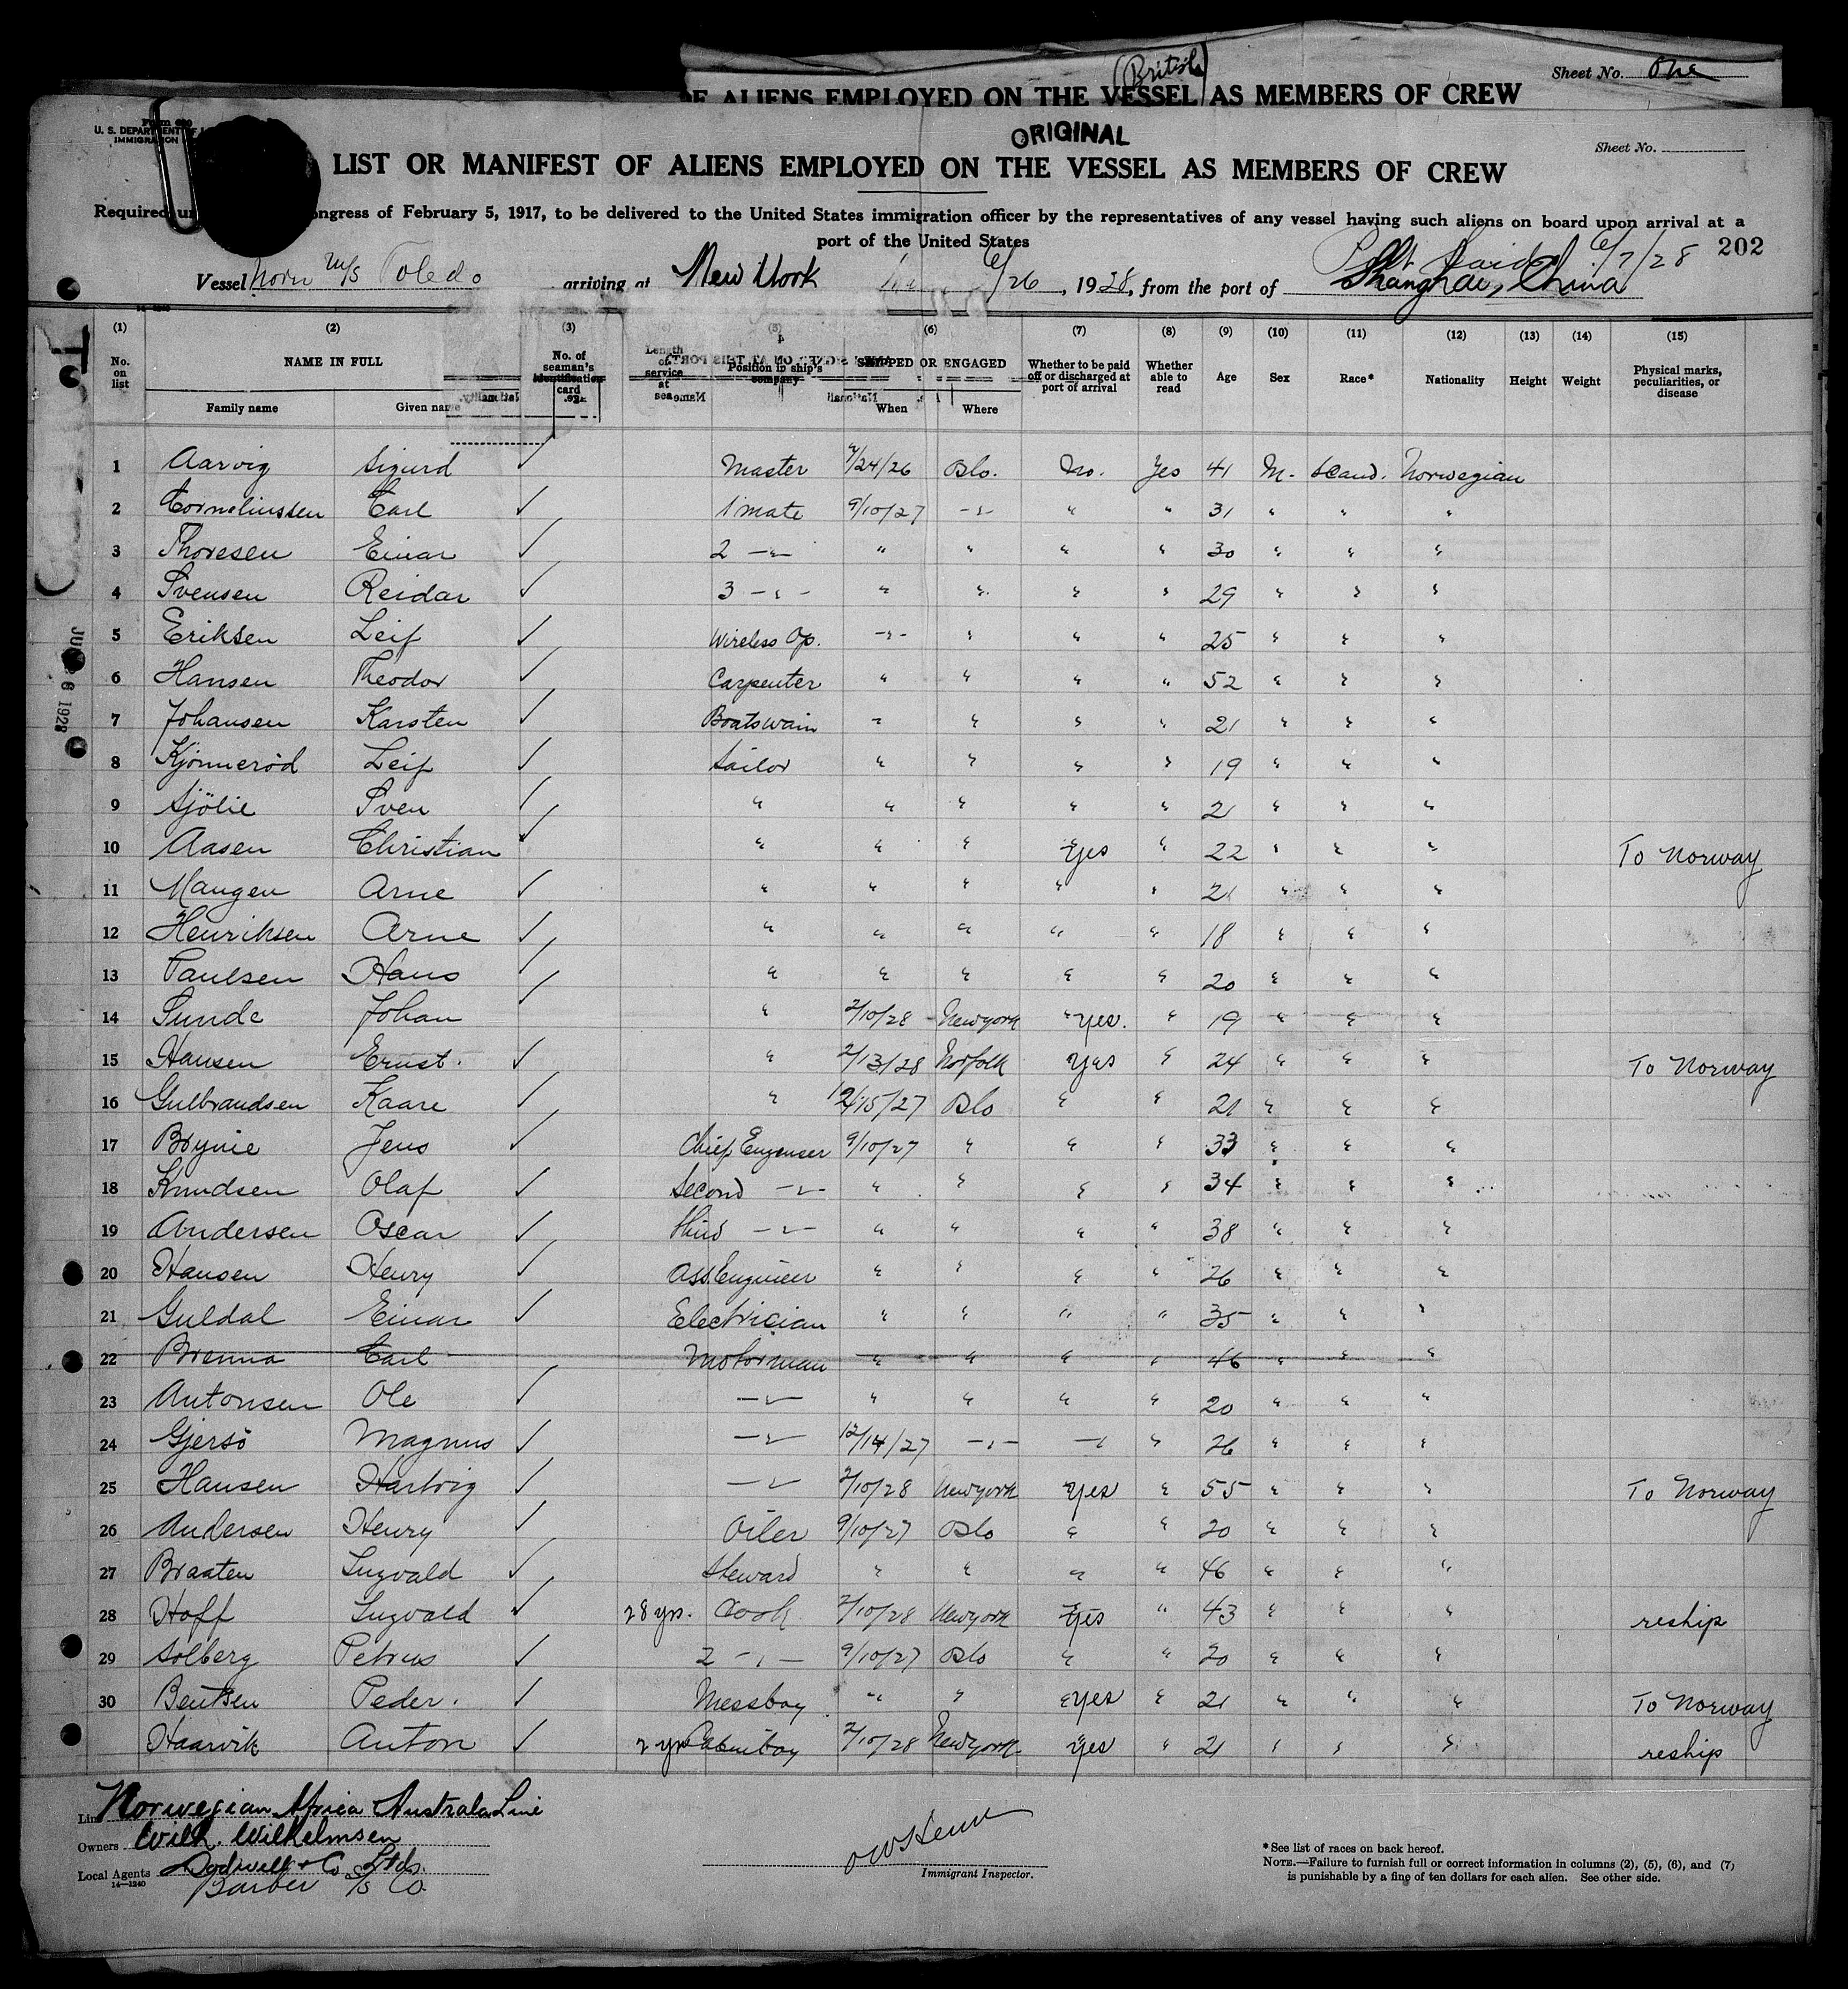 (British)
Sheet No. One
OF ALIENS EMPLOYED ON THE VESSEL AS MEMBERS OF CREW
Form 680
U. S. DEPARTMENT OF
IMMIGRATION
ORIGINAL
Sheet No.
LIST OR MANIFEST OF ALIENS EMPLOYED ON THE VESSEL AS MEMBERS OF CREW
Required un ongress of February 5, 1917, to be delivered to the United States immigration officer by the representatives of any vessel having such aliens on board upon arrival at a
port of the United States
Port Said 6/7/28 202
Vessel Norw M/S Toledo arriving at New York 6/26, 1928, from the port of Shanghai, China
(1) (2) (3) (4) (5) (6) (7) (8) (9) (10) (11) (12) (13) (14) (15)
No. on list NAME IN FULL No. of seaman's identification card Length of service at sea Position in ship's company SHIPPED OR ENGAGED Whether to be paid off or discharged at port of arrival Whether able to read Age Sex Race* Nationality Height Weight Physical marks, peculiarities, or disease
Family name Given name When Where
1 Aarvig Sigurd ✓ Master 4/24/26 Oslo. No. Yes 41 M. Scand. Norwegian
2 Corneliussen Carl ✓ 1 mate 9/10/27 -"- " " 31 " " "
3 Thoresen Einar ✓ 2 -"- " " " " 30 " " "
4 Svensen Reidar ✓ 3 -"- " " " " 29 " " "
5 Eriksen Leif ✓ Wireless Op. -"- " " " 25 " " "
6 Hansen Theodor ✓ Carpenter " " " " 52 " " "
7 Johansen Karsten ✓ Boatswain " " " " 21 " " "
8 Kjönneröd Leif ✓ Sailor " " " " 19 " " "
9 Sjölie Sven ✓ " " " " " 21 " " "
10 Aasen Christian ✓ " " " Yes " 22 " " " To Norway
11 Haugen Arne ✓ " " " " " 21 " " "
12 Henriksen Arne ✓ " " " " " 18 " " "
13 Paulsen Hans ✓ " " " " " 20 " " "
14 Sunde Johan ✓ " 2/10/28 New york " Yes. " 19 " " "
15 Hansen Ernst. ✓ " 2/13/28 Norfolk Yes " 24 " " " To Norway
16 Gulbrandsen Kaare ✓ " 12/15/27 Oslo " " 21 " " "
17 Brynie Jens ✓ Chief Engenser 9/10/27 " " " 33 " " "
18 Knudsen Olaf ✓ Second -"- " " " " 34 " " "
19 Andersen Oscar ✓ Third -"- " " " " 38 " " "
20 Hansen Henry ✓ Ass. Engineer " " " " 26 " " "
21 Guldal Einar ✓ Electrician " " " " 35 " " "
22 Brenna Carl Motorman " " " " 46 " " "
23 Antonsen Ole ✓ -"- " " " " 20 " " "
24 Gjersö Magnus ✓ -"- 12/14/27 -"- -" " 26 " " "
25 Hansen Hartvig ✓ -"- 2/10/28 New york Yes " 55 " " " To Norway
26 Andersen Henry ✓ Oiler 9/10/27 Oslo " " 20 " " "
27 Braaten Ingvald ✓ Steward " " " " 46 " " "
28 Hoff Ingvald ✓ 28 yrs. Cook 2/10/28 New york Yes " 43 " " " reship
29 Solberg Petrus ✓ 2 -"- 9/10/27 Oslo " " 20 " " "
30 Bentsen Peder. ✓ Messboy " " " Yes " 21 " " " To Norway
Haarvik Anton ✓ 2 yrs Cabinboy 2/10/28 New york Yes " 21 " " " reship
JUN 26 1928
Line Norwegian Africa Australia Line
Owners Wilh. Wilhelmsen
Local Agents Dodwell & Co Ltd.
Barber S/S Co.
14—1240
Immigrant Inspector.
* See list of races on back hereof.
NOTE.—Failure to furnish full or correct information in columns (2), (5), (6), and (7)
is punishable by a fine of ten dollars for each alien. See other side.